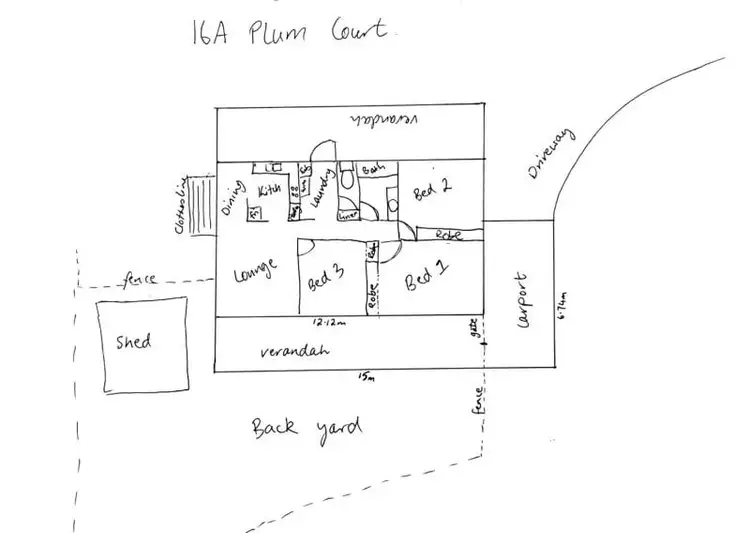 16A Plum Court.
verandah
Driveway
Clothesline
Dining
Kitch
Laundry
Bath
Bed 2
Linen
Robe
fence
Lounge
Bed 3
Robe
Robe
Bed 1
Carport
6.74m
Shed
12.12m
gate
verandah
15m
fence
Back yard